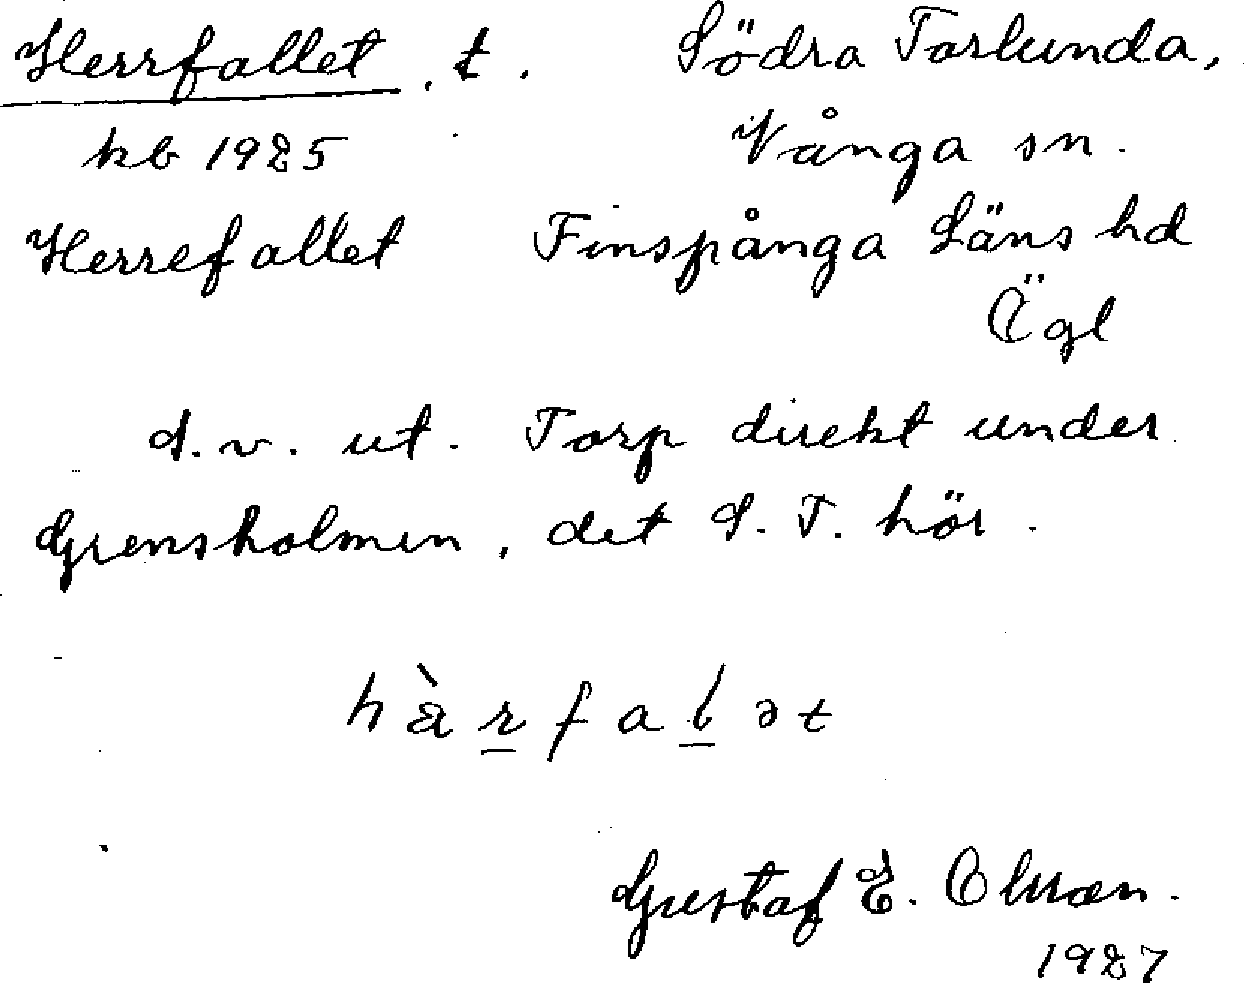 Herrfallet, t. Södra Torlunda,
kb 1925 Vånga sn.
Herrefallet Finspånga Läns hd
Ögl
d. v. ut. Torp direkt under
Grensholmen, det S. T. hör.
hàrfalət
Gustaf E. Olsson.
1927